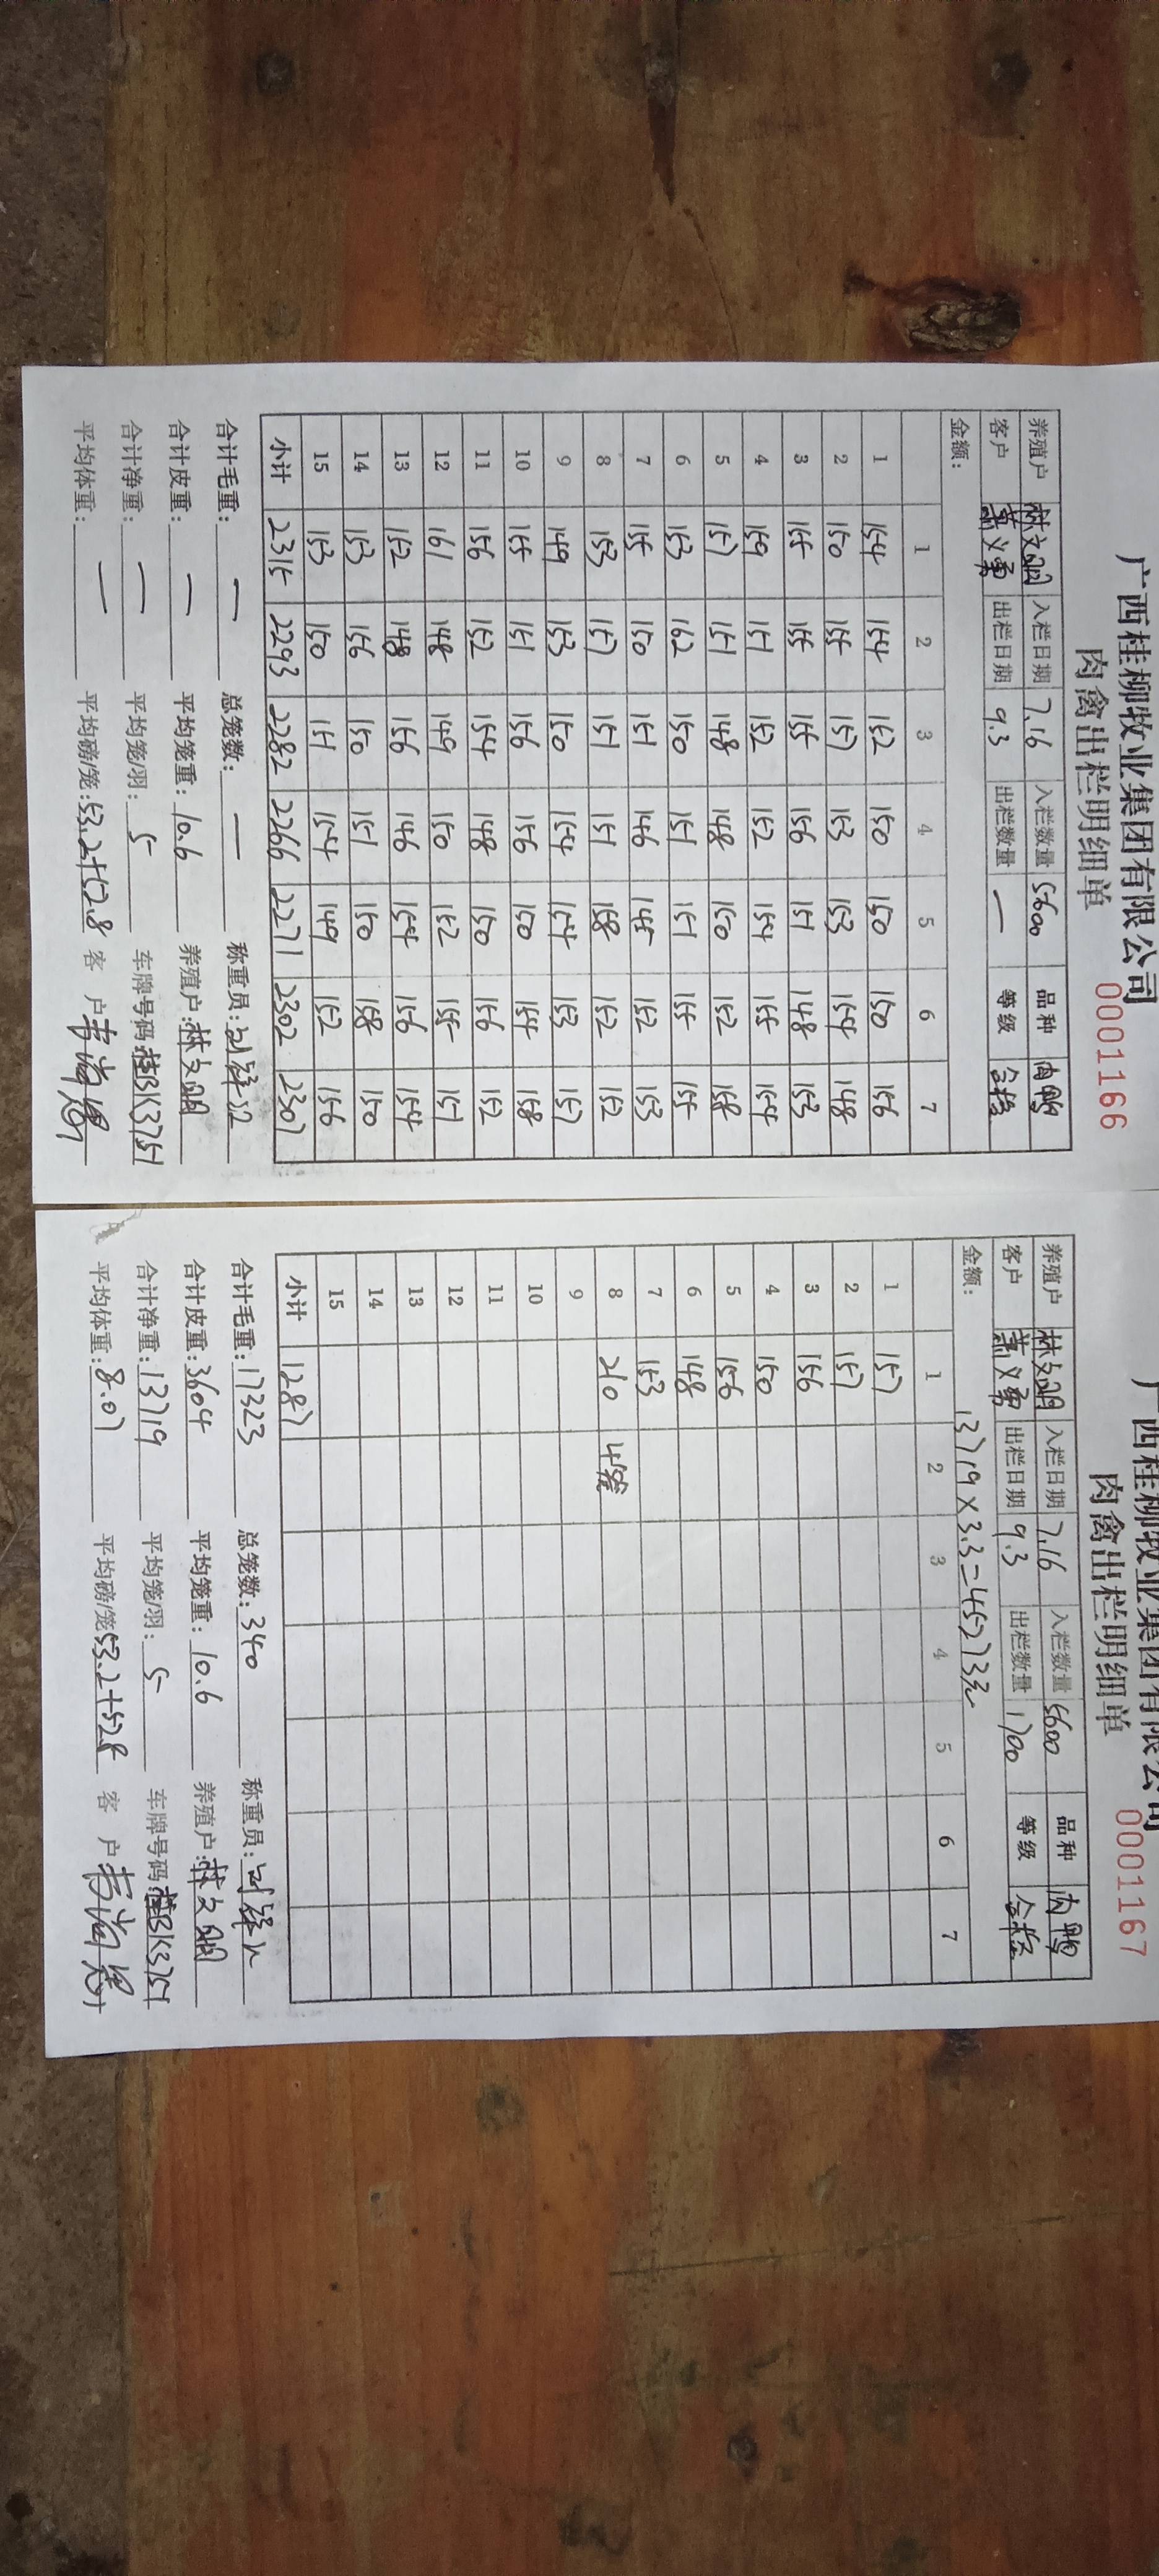 广西桂柳牧业集团有限公司
肉禽出栏明细单 0001166
养殖户 林文明 入栏日期 7.16 入栏数量 5600 品种 肉鸭
客户 萧义勇 出栏日期 9.3 出栏数量 — 等级 合格
金额：
1 2 3 4 5 6 7
1 154 154 152 150 150 150 156
2 150 155 157 153 153 154 148
3 155 155 155 156 151 148 153
4 159 151 152 152 154 155 154
5 157 151 148 148 150 152 158
6 153 162 150 151 151 155 155
7 155 150 151 146 145 152 153
8 153 157 151 151 158 152 152
9 149 153 150 154 154 153 157
10 155 151 156 156 150 154 158
11 156 152 154 148 150 156 152
12 161 148 149 150 152 155 151
13 152 148 156 146 154 156 154
14 153 156 150 151 150 158 150
15 153 150 151 154 149 152 156
小计 2315 2293 2282 2266 2271 2302 2307
合计毛重：— 总笼数：— 称重员：
合计皮重：— 平均笼重：10.6 养殖户：林文明
合计净重：— 平均笼/羽：5 车牌号码：桂BK3751
平均体重：— 平均磅/笼：53.2+52.8 客 户
广西桂柳牧业集团有限公司
肉禽出栏明细单 0001167
养殖户 林文明 入栏日期 7.16 入栏数量 5600 品种 肉鸭
客户 萧义勇 出栏日期 9.3 出栏数量 1700 等级 合格
金额： 13719×3.3=45273元
1 2 3 4 5 6 7
1 157
2 157
3 156
4 150
5 156
6 148
7 153
8 210 4笼
9
10
11
12
13
14
15
小计 1287
合计毛重：17323 总笼数：340 称重员：
合计皮重：3604 平均笼重：10.6 养殖户：林文明
合计净重：13719 平均笼/羽：5 车牌号码：桂BK3751
平均体重：8.07 平均磅/笼 53.2+52.8 客 户